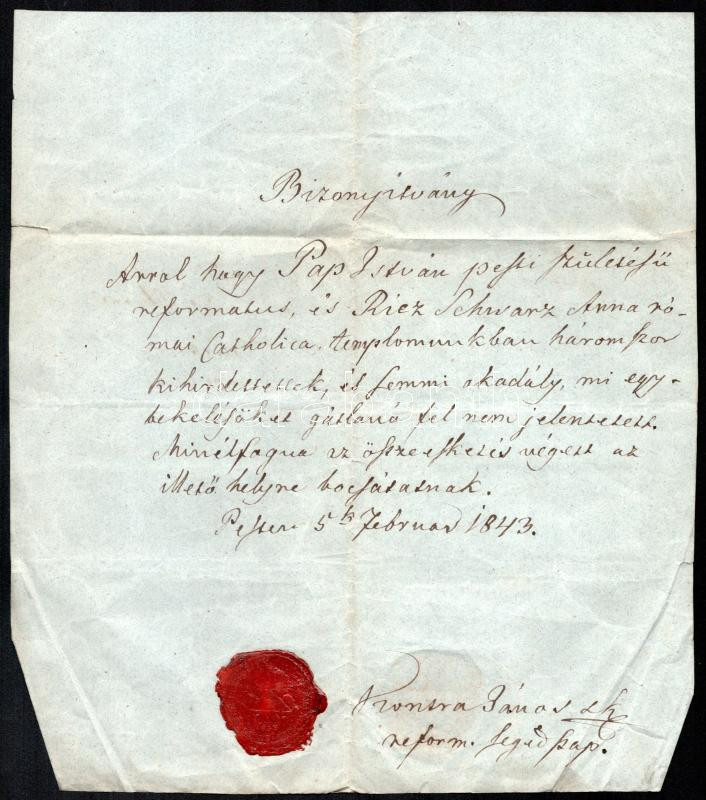 Bizonyitvány
Arrol hogy Pap István pesti születésü
reformatus, és Riez Schwarz Anna ró-
mai Catholica, templomunkban háromszor
kihirdettettek, és semmi akadály, mi egy-
bekelésöket gátlaná fel nem jelentetett.
Minélfogva az összeesketés végett az
illető helyre bocsátatnak.
Pesten 5k Februar 1843.
Kontra János sk
reform. segéd pap.